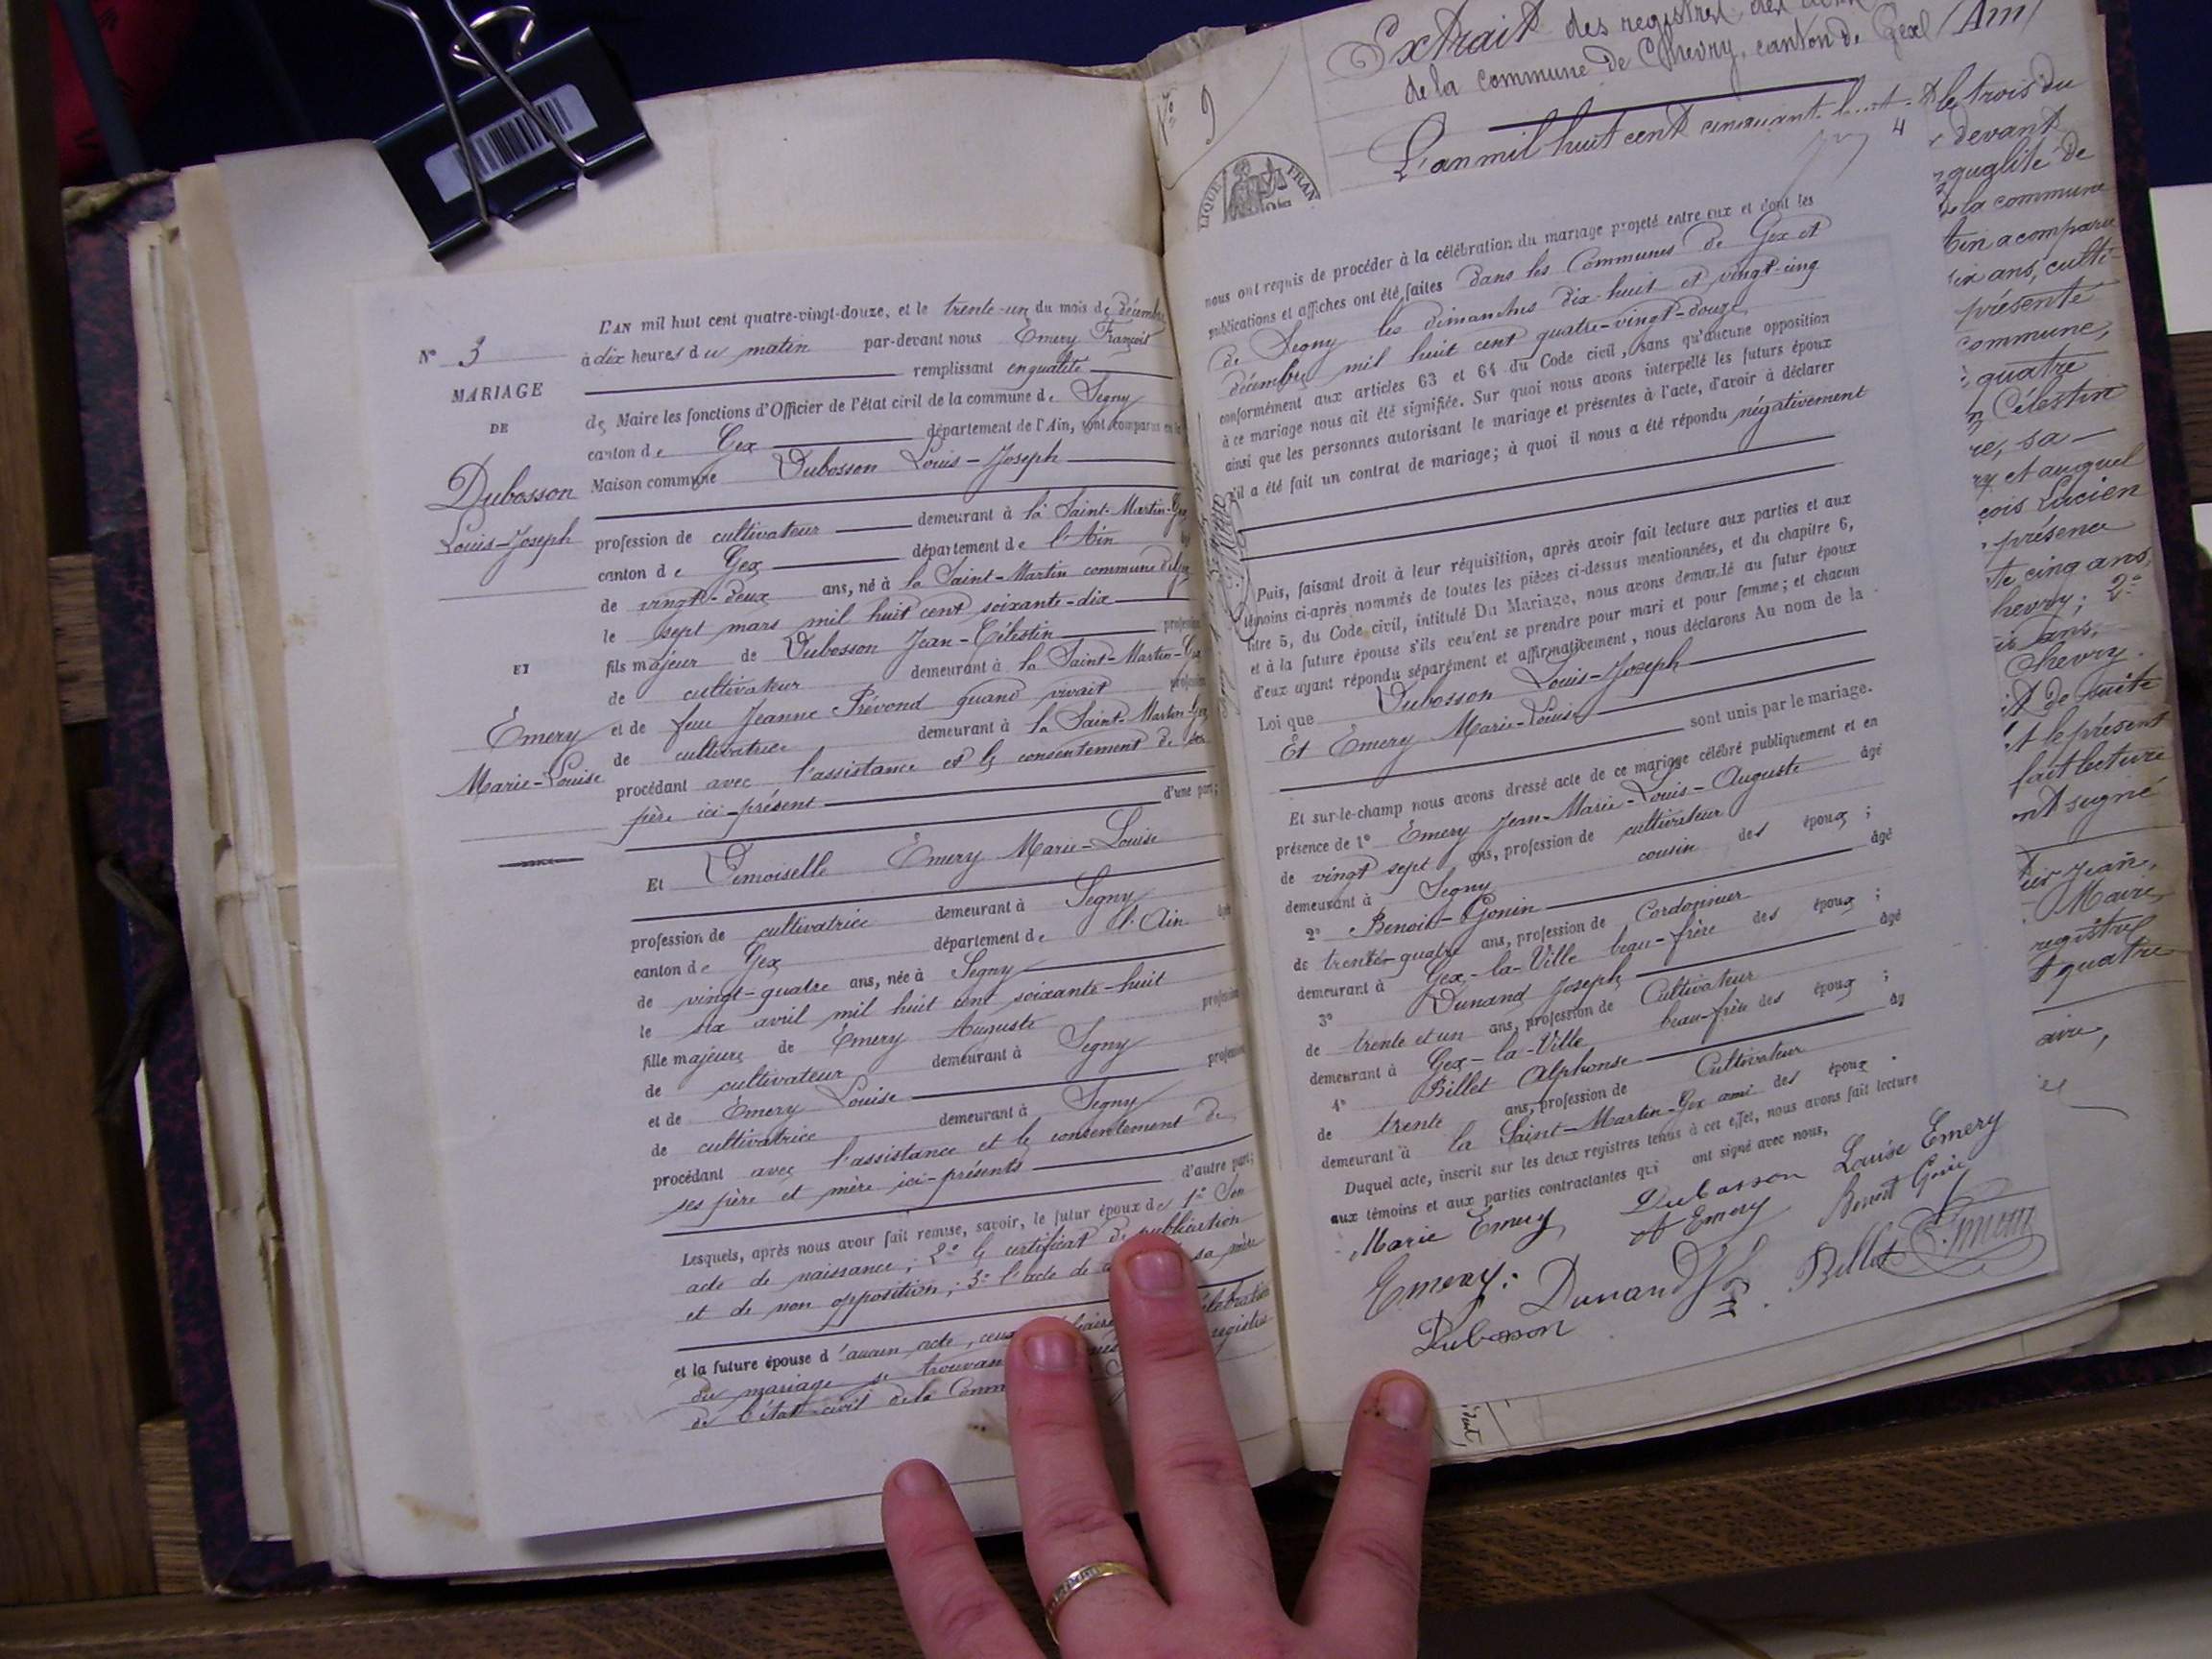 L'AN mil huit cent quatre-vingt-douze, et le trente-un du mois de décembre
à dix heures du matin par-devant nous Emery François
remplissant en qualité
de Maire les fonctions d'Officier de l'état civil de la commune de Segny
canton de Gex département de l'Ain, sont comparus en la
Maison commune Dubosson Louis-Joseph
profession de cultivateur demeurant à la Saint-Martin-Gex
canton de Gex département de l'Ain
de vingt-deux ans, né à la Saint-Martin commune de Gex
le sept mars mil huit cent soixante-dix
fils majeur de Dubosson Jean-Célestin profession
de cultivateur demeurant à la Saint-Martin-Gex
et de feue Jeanne Prévond quand vivait profession
de cultivatrice demeurant à la Saint-Martin-Gex
procédant avec l'assistance et le consentement de son
père ici-présent d'une part;
Et Demoiselle Emery Marie-Louise
profession de cultivatrice demeurant à Segny
canton de Gex département de l'Ain âgée
de vingt-quatre ans, née à Segny
le six avril mil huit cent soixante-huit
fille majeure de Emery Auguste profession
de cultivateur demeurant à Segny
et de Emery Louise profession
de cultivatrice demeurant à Segny
procédant avec l'assistance et le consentement de
ses père et mère ici-présents d'autre part;
Lesquels, après nous avoir fait remise, savoir, le futur époux de 1° Son
acte de naissance; 2° le certificat de publication
et de non opposition; 3° l'acte de sa mère
et la future épouse d'aucun acte, ceux célébration
du mariage se trouvan registres
de l'état-civil de la Comm
N° 3
MARIAGE
DE
Dubosson
Louis-Joseph
ET
Emery
Marie-Louise
N° 9
Extrait des registres des
de la commune de Chevry, canton de Gex (Ain)
L'an mil huit cent cinquant. le trois du
4
LIQUE FRAN
nous ont requis de procéder à la célébration du mariage projeté entre eux et dont les
publications et affiches ont été faites dans les Communes de Gex et
de Segny les dimanches dix-huit et vingt-cinq
décembre mil huit cent quatre-vingt-douze
conformément aux articles 63 et 64 du Code civil, sans qu'aucune opposition
à ce mariage nous ait été signifiée. Sur quoi nous avons interpellé les futurs époux
ainsi que les personnes autorisant le mariage et présentes à l'acte, d'avoir à déclarer
s'il a été fait un contrat de mariage; à quoi il nous a été répondu négativement
Puis, faisant droit à leur réquisition, après avoir fait lecture aux parties et aux
témoins ci-après nommés de toutes les pièces ci-dessus mentionnées, et du chapitre 6,
titre 5, du Code civil, intitulé Du Mariage, nous avons demandé au futur époux
et à la future épouse s'ils veulent se prendre pour mari et pour femme; et chacun
d'eux ayant répondu séparément et affirmativement, nous déclarons Au nom de la
Loi que Dubosson Louis-Joseph
Et Emery Marie-Louise
sont unis par le mariage.
Et sur-le-champ nous avons dressé acte de ce mariage célébré publiquement et en
présence de 1° Emery Jean-Marie-Louis-Auguste âgé
de vingt sept ans, profession de cultivateur
demeurant à Segny cousin des époux;
2° Benoit-Gonin âgé
de trente-quatre ans, profession de Cordonnier
demeurant à Gex-la-Ville beau-frère des époux;
3° Dunand Joseph âgé
de trente et un ans, profession de Cultivateur
demeurant à Gex-la-Ville beau-frère des époux;
4° Billet Alphonse âg
de trente ans, profession de Cultivateur
demeurant à la Saint-Martin-Gex ami des époux.
Duquel acte, inscrit sur les deux registres tenus à cet effet, nous avons fait lecture
aux témoins et aux parties contractantes qui ont signé avec nous,
Marie Emery Dubosson Louise Emery
A Emery Benoit Gonin
Emery: Dunand Billet
Dubosson
devant
qualité de
de la commune
tin a comparu
six ans, culti-
présenté
commune,
quatre
Célestin
re, sa
ry et auquel
çois Lucien
présence
te cinq ans,
hevry; 2°
ans,
Chevry.
it de suite
et le présent
fait lecture
ont signé
Jean,
Maire
registres
t quatre
aire,